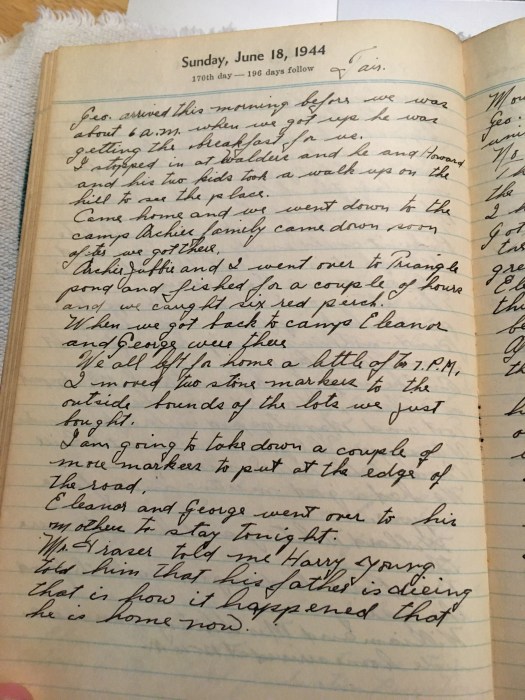 Sunday, June 18, 1944
170th day—196 days follow
Fair.
Geo. arrived this morning before we was
about 6 a.m. when we got up he was
getting the breakfast for us.
I stopped in at Waldeir and he and Howard
and his two kids took a walk up on the
hill to see the place.
Came home and we went down to the
camp Archies family came down soon
after we got there.
Archie, and I went over to Triangle
pond and fished for a couple of hours
and we caught six red perch.
When we got back to camp Eleanor
and George were there
We all left for home a little of to 7. P.M.
I moved two stone markers to the
outside bounds of the lots we just
bought.
I am going to take down a couple of
more markers to put at the edge of
the road.
Eleanor and George went over to his
mother to stay tonight.
Mr. Fraser told me Harry Young
told him that his father is dieing
that is how it happened that
he is home now.
Mo
Geo.
No
the
I
got
gre
Ele
the